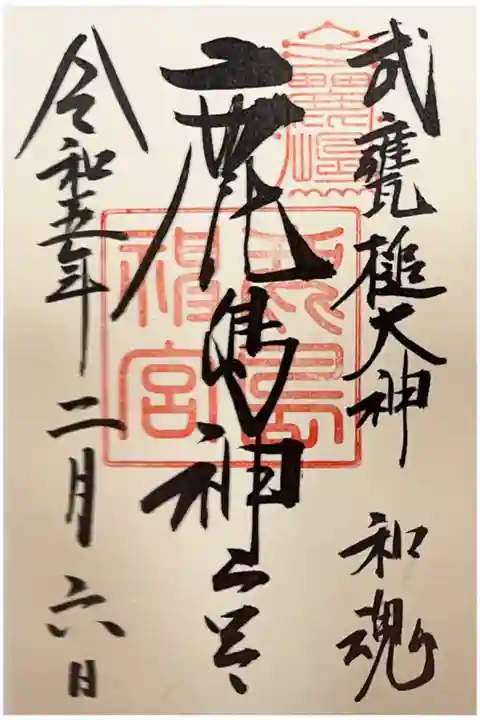 武甕槌大神 和魂
鹿島神宮
鹿島神宮
令和五年二月六日